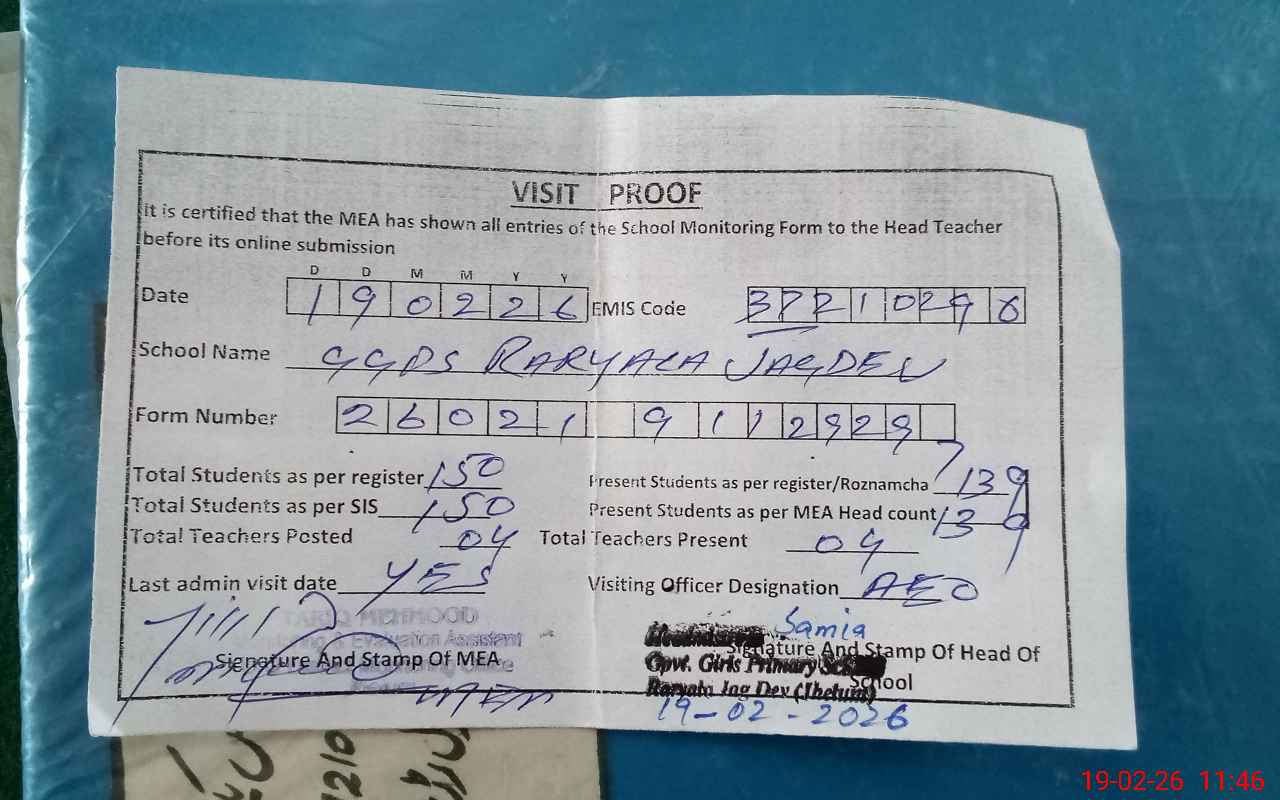 VISIT PROOF
It is certified that the MEA has shown all entries of the School Monitoring Form to the Head Teacher
before its online submission
D D M M Y Y
Date 190226 EMIS Code 37210296
School Name GGPS RARYALA JAGDEV
Form Number 26021 9112929
Total Students as per register 150 Present Students as per register/Roznamcha 139
Total Students as per SIS 150 Present Students as per MEA Head count 139
Total Teachers Posted 04 Total Teachers Present 04
Last admin visit date YES Visiting Officer Designation AEO
TARIQ MEHMOOD
Monitoring & Evaluation Assistant
Signature And Stamp Of MEA
Samia
Signature And Stamp Of Head Of
School
Govt. Girls Primary School
Raryala Jag Dev (Jhelum)
19-02-2026
19-02-26 11:46